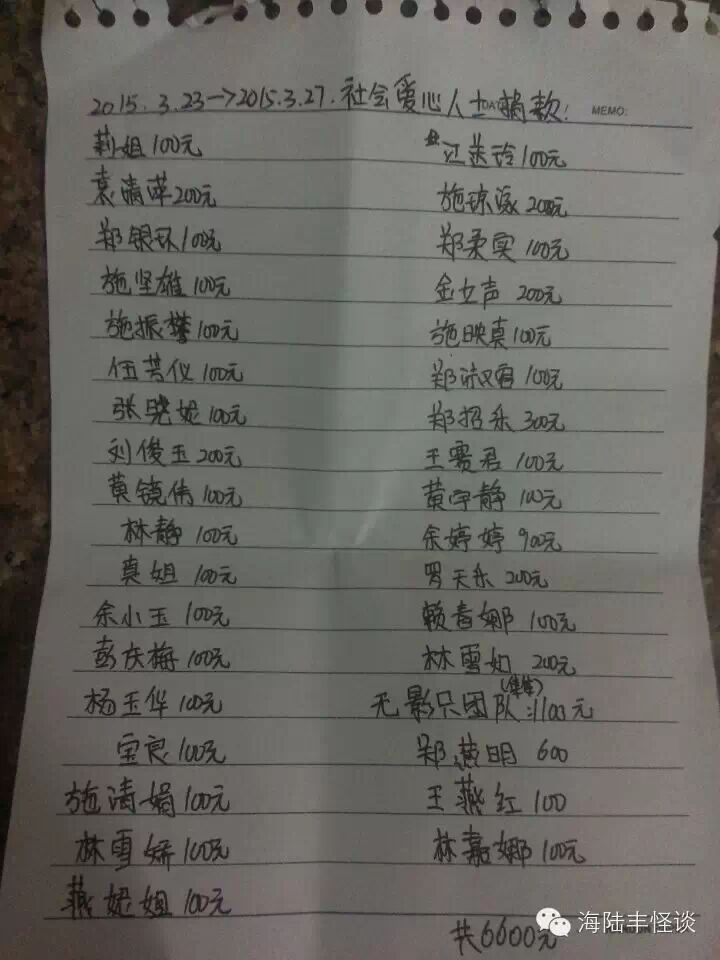 2015.3.23→2015.3.27.社会爱心人士捐款!
MEMO:
莉姐100元
江送玲100元
袁清萍200元
施琼 200元
郑银环100元
郑柔实100元
施坚雄100元
金女声 200元
施振 100元
施映真100元
伍芳仪100元
郑淑 100元
张晓妮100元
郑招乐300元
刘俊玉200元
王赛君 100元
黄镜伟100元
黄宇静 100元
林静 100元
余婷婷 900元
真姐 100元
罗天乐 200元
余小玉 100元
赖春娜 100元
彭庆梅100元
林雪如 200元
杨玉华100元
(集体)
无影只团队:1100元
宝良100元
郑燕明 600
施清娟100元
王燕红100
林雪娇100元
林嘉娜100元
燕妮姐 100元
共6600元
海陆丰怪谈